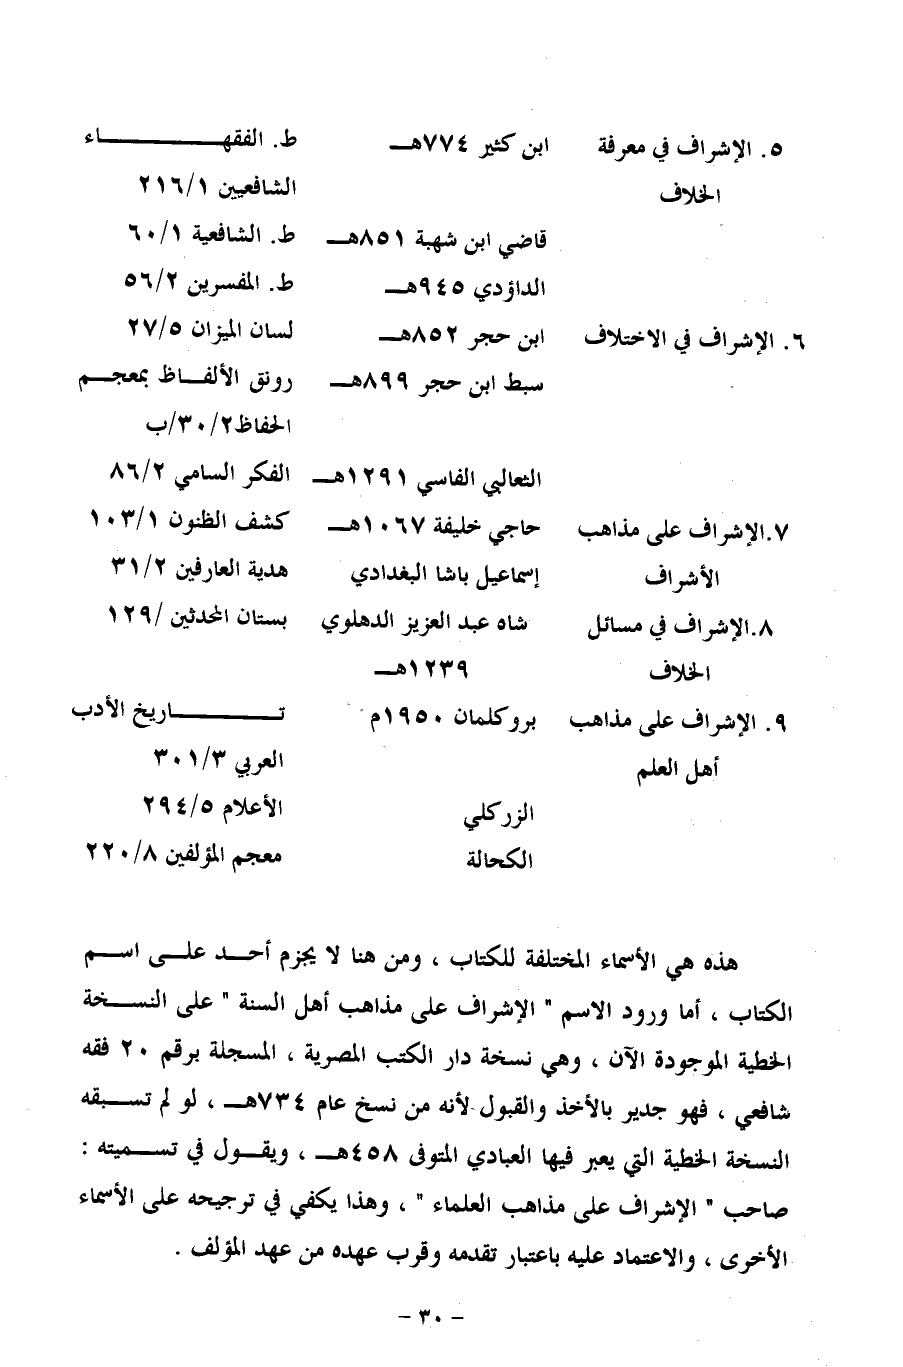 ٥. الإشراف في معرفة ابن كثير ٧٧٤هـ ط. الفقهاء
الخلاف الشافعيين ٢١٦/١
قاضي ابن شهبة ٨٥١هـ ط. الشافعية ٦٠/١
الداؤدي ٩٤٥هـ ط. المفسرين ٥٦/٢
٦. الإشراف في الاختلاف ابن حجر ٨٥٢هـ لسان الميزان ٢٧/٥
سبط ابن حجر ٨٩٩هـ رونق الألفاظ بمعجم
الحفاظ ٣٠/٢/ب
الثعالبي الفاسي ١٢٩١هـ الفكر السامي ٨٦/٢
٧.الإشراف على مذاهب حاجي خليفة ١٠٦٧هـ كشف الظنون ١٠٣/١
الأشراف إسماعيل باشا البغدادي هدية العارفين ٣١/٢
٨.الإشراف في مسائل شاه عبد العزيز الدهلوي بستان المحدثين /١٢٩
الخلاف ١٢٣٩هـ
٩. الإشراف على مذاهب بروكلمان ١٩٥٠م تاريخ الأدب
أهل العلم العربي ٣٠١/٣
الزركلي الأعلام ٢٩٤/٥
الكحالة معجم المؤلفين ٢٢٠/٨
هذه هي الأسماء المختلفة للكتاب ، ومن هنا لا يجزم أحد على اسم
الكتاب ، أما ورود الاسم " الإشراف على مذاهب أهل السنة " على النسخة
الخطية الموجودة الآن ، وهي نسخة دار الكتب المصرية ، المسجلة برقم ٢٠ فقه
شافعي ، فهو جدير بالأخذ والقبول لأنه من نسخ عام ٧٣٤هـ ، لو لم تسبقه
النسخة الخطية التي يعبر فيها العبادي المتوفى ٤٥٨هـ ، ويقول في تسميته :
صاحب " الإشراف على مذاهب العلماء " ، وهذا يكفي في ترجيحه على الأسماء
الأخرى ، والاعتماد عليه باعتبار تقدمه وقرب عهده من عهد المؤلف .
- ٣٠ -